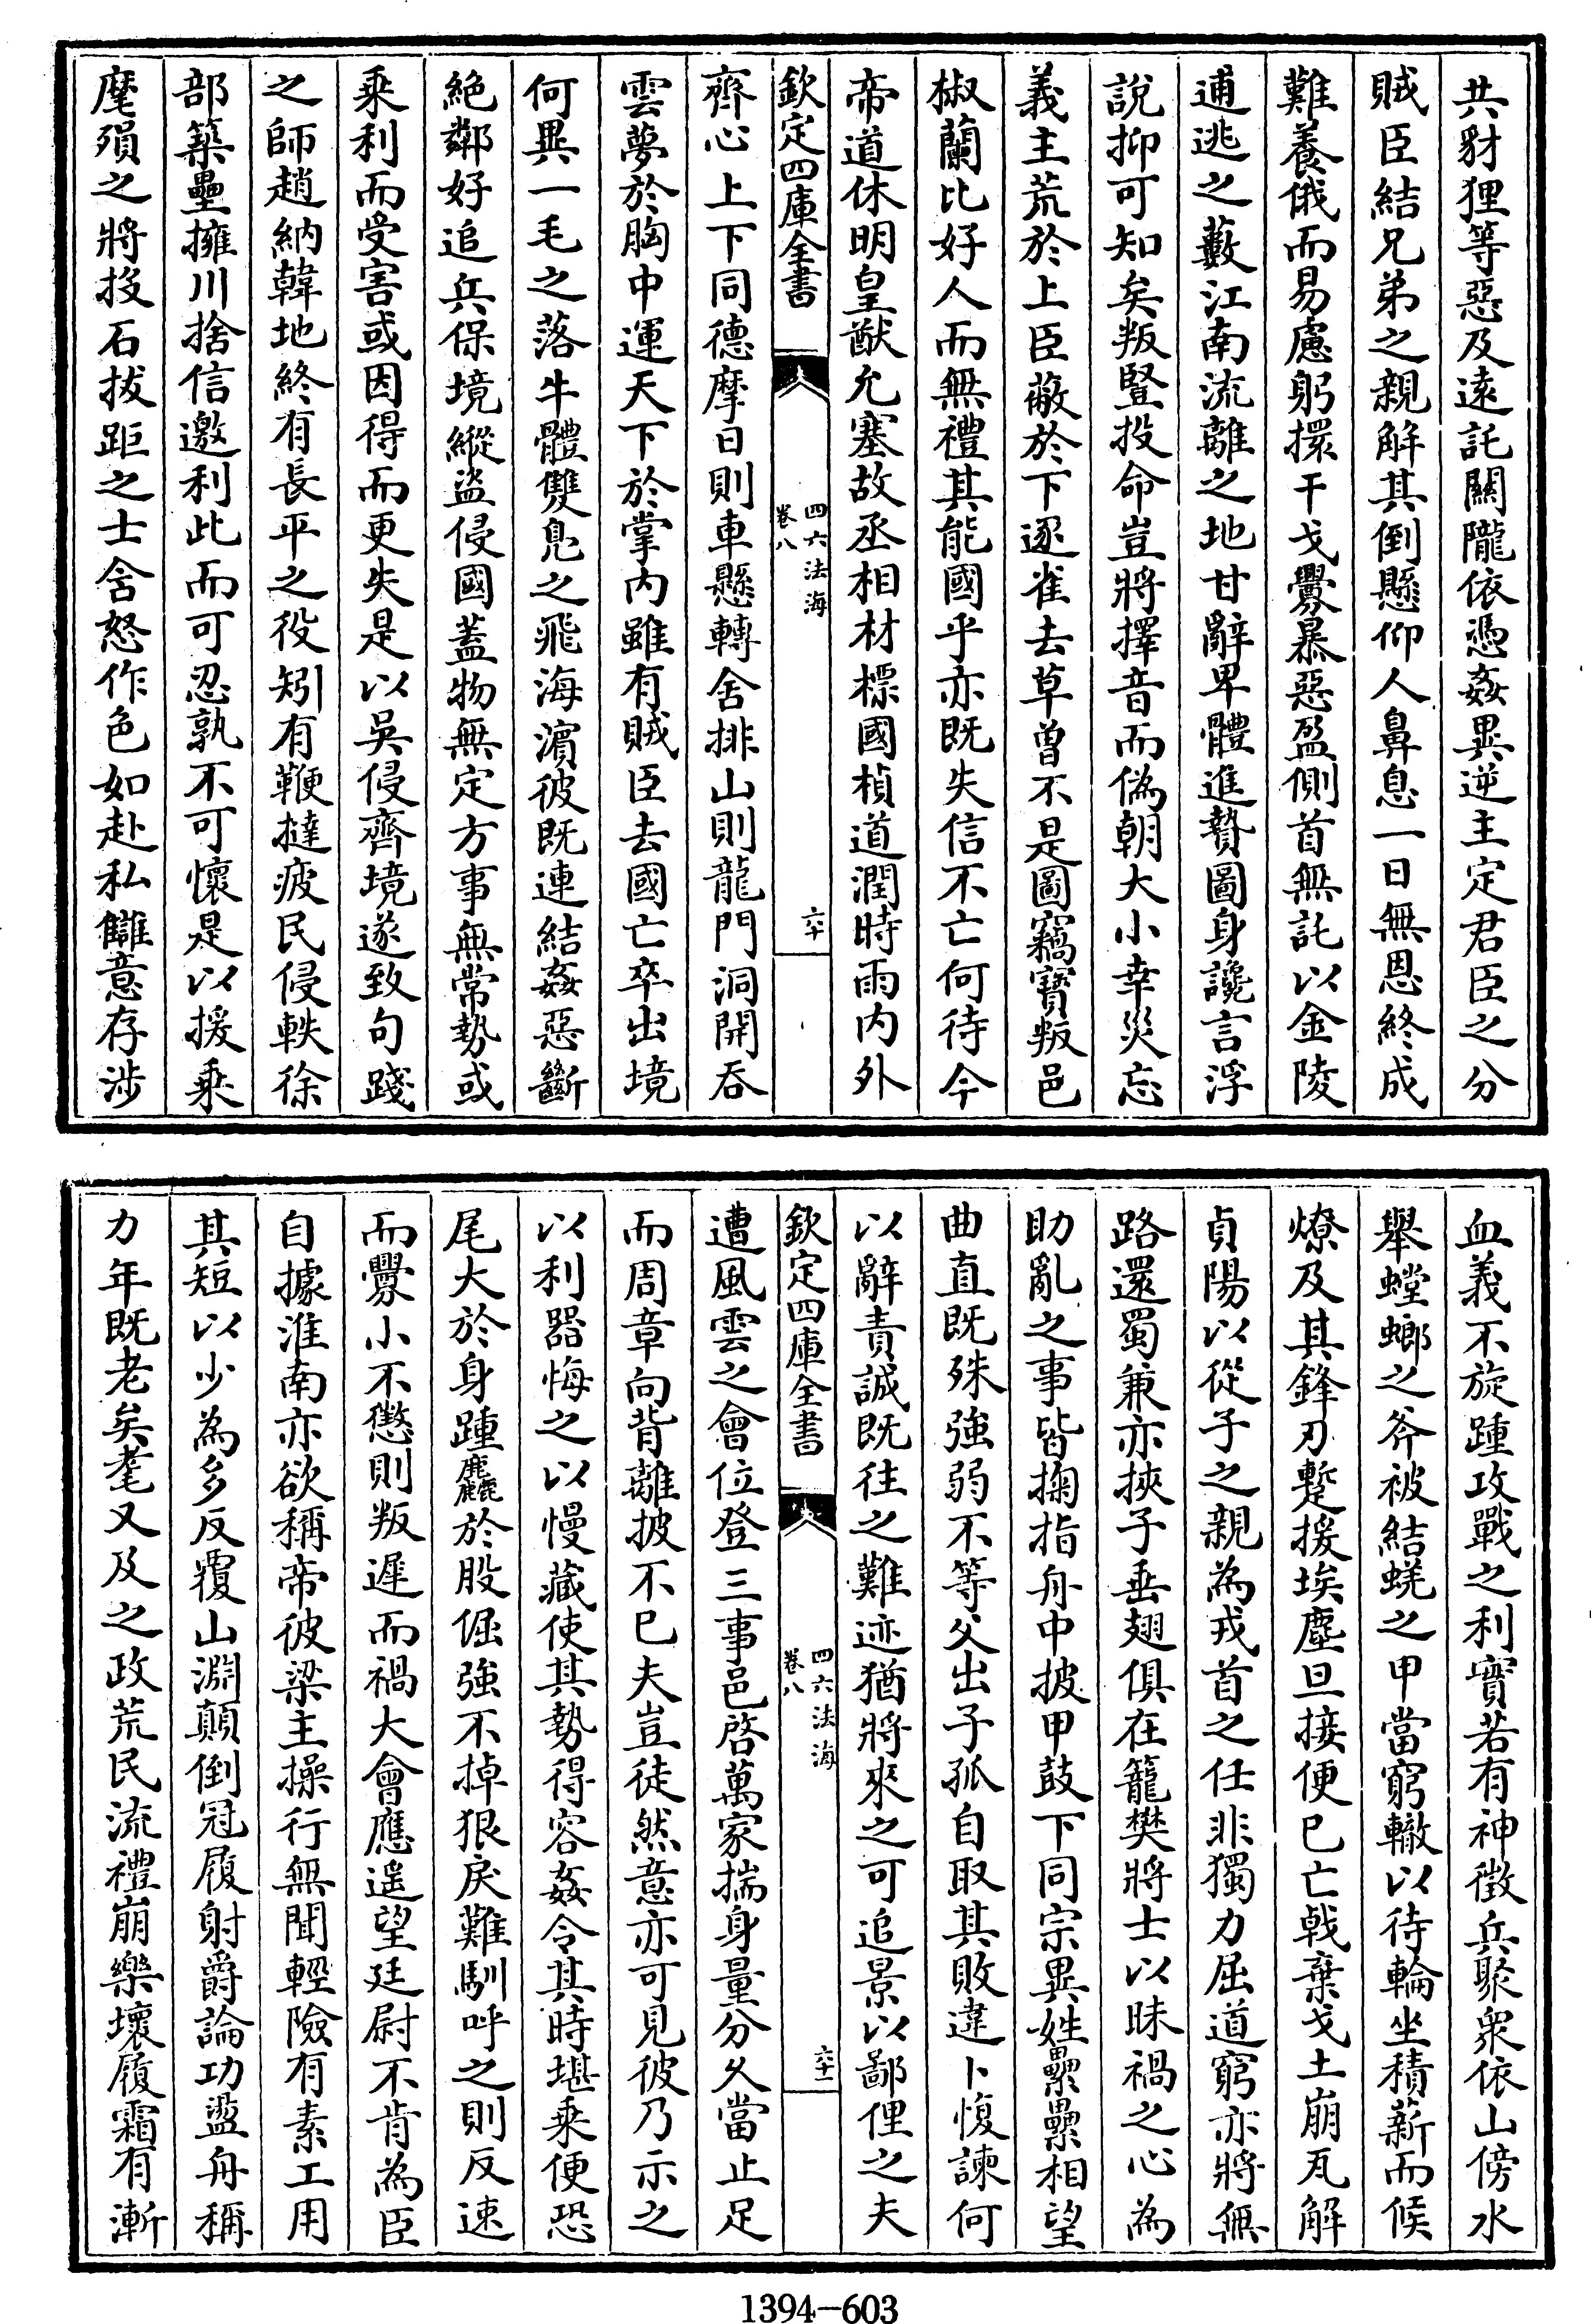 共豺狸等惡及遠託關隴依憑姦異逆主定君臣之分
賊臣結兄弟之親解其倒懸仰人鼻息一日無恩終成
難養俄而易慮躬擐干戈釁暴惡盈側首無託以金陵
逋逃之藪江南流離之地甘辭卑體進贄圖身讒言浮
說抑可知矣叛豎投命豈將擇音而偽朝大小幸災忘
義主荒於上臣蔽於下逐雀去草曾不是圖竊寳叛邑
椒蘭比好人而無禮其能國乎亦既失信不亡何待今
帝道休明皇猷允塞故丞相材標國楨道潤時雨內外
欽定四庫全書
四六法海
卷八
六十
齊心上下同德摩日則車懸轉舍排山則龍門洞開吞
雲夢於胸中運天下於掌內雖有賊臣去國亡卒出境
何異一毛之落牛體雙鳬之飛海濵彼既連結姦惡斷
絶鄰好追兵保境縱盜侵國蓋物無定方事無常勢或
乘利而受害或因得而更失是以吳侵齊境遂致句踐
之師趙納韓地終有長平之役矧有鞭撻疲民侵軼徐
部築壘擁川捨信邀利此而可忍孰不可懷是以援乘
麾殞之將投石拔距之士含怒作色如赴私讎意存涉
血義不旋踵攻戰之利實若有神徵兵聚衆依山傍水
舉螳螂之斧被結蜣之甲當窮轍以待輪坐積薪而候
燎及其鋒刃蹔援埃塵旦接便已亡戟棄戈土崩瓦解
貞陽以從子之親為戎首之任非獨力屈道窮亦將無
路還蜀兼亦挾子垂翅俱在籠樊將士以昧禍之心為
助亂之事皆掬指舟中披甲鼓下同宗異姓纍纍相望
曲直既殊強弱不等父出子孤自取其敗違卜愎諫何
以辭責誠既往之難迹猶將來之可追景以鄙俚之夫
欽定四庫全書
四六法海
卷八
六十一
遭風雲之會位登三事邑啓萬家揣身量分久當止足
而周章向背離披不已夫豈徒然意亦可見彼乃示之
以利器悔之以慢藏使其勢得容姦令其時堪乘便恐
尾大於身踵麤於股倔強不掉狠戾難馴呼之則反速
而釁小不懲則叛遲而禍大會應遥望廷尉不肯為臣
自據淮南亦欲稱帝彼梁主操行無聞輕險有素工用
其短以少為多反覆山淵顛倒冠履射爵論功盪舟稱
力年既老矣耄又及之政荒民流禮崩樂壞履霜有漸
1394-603